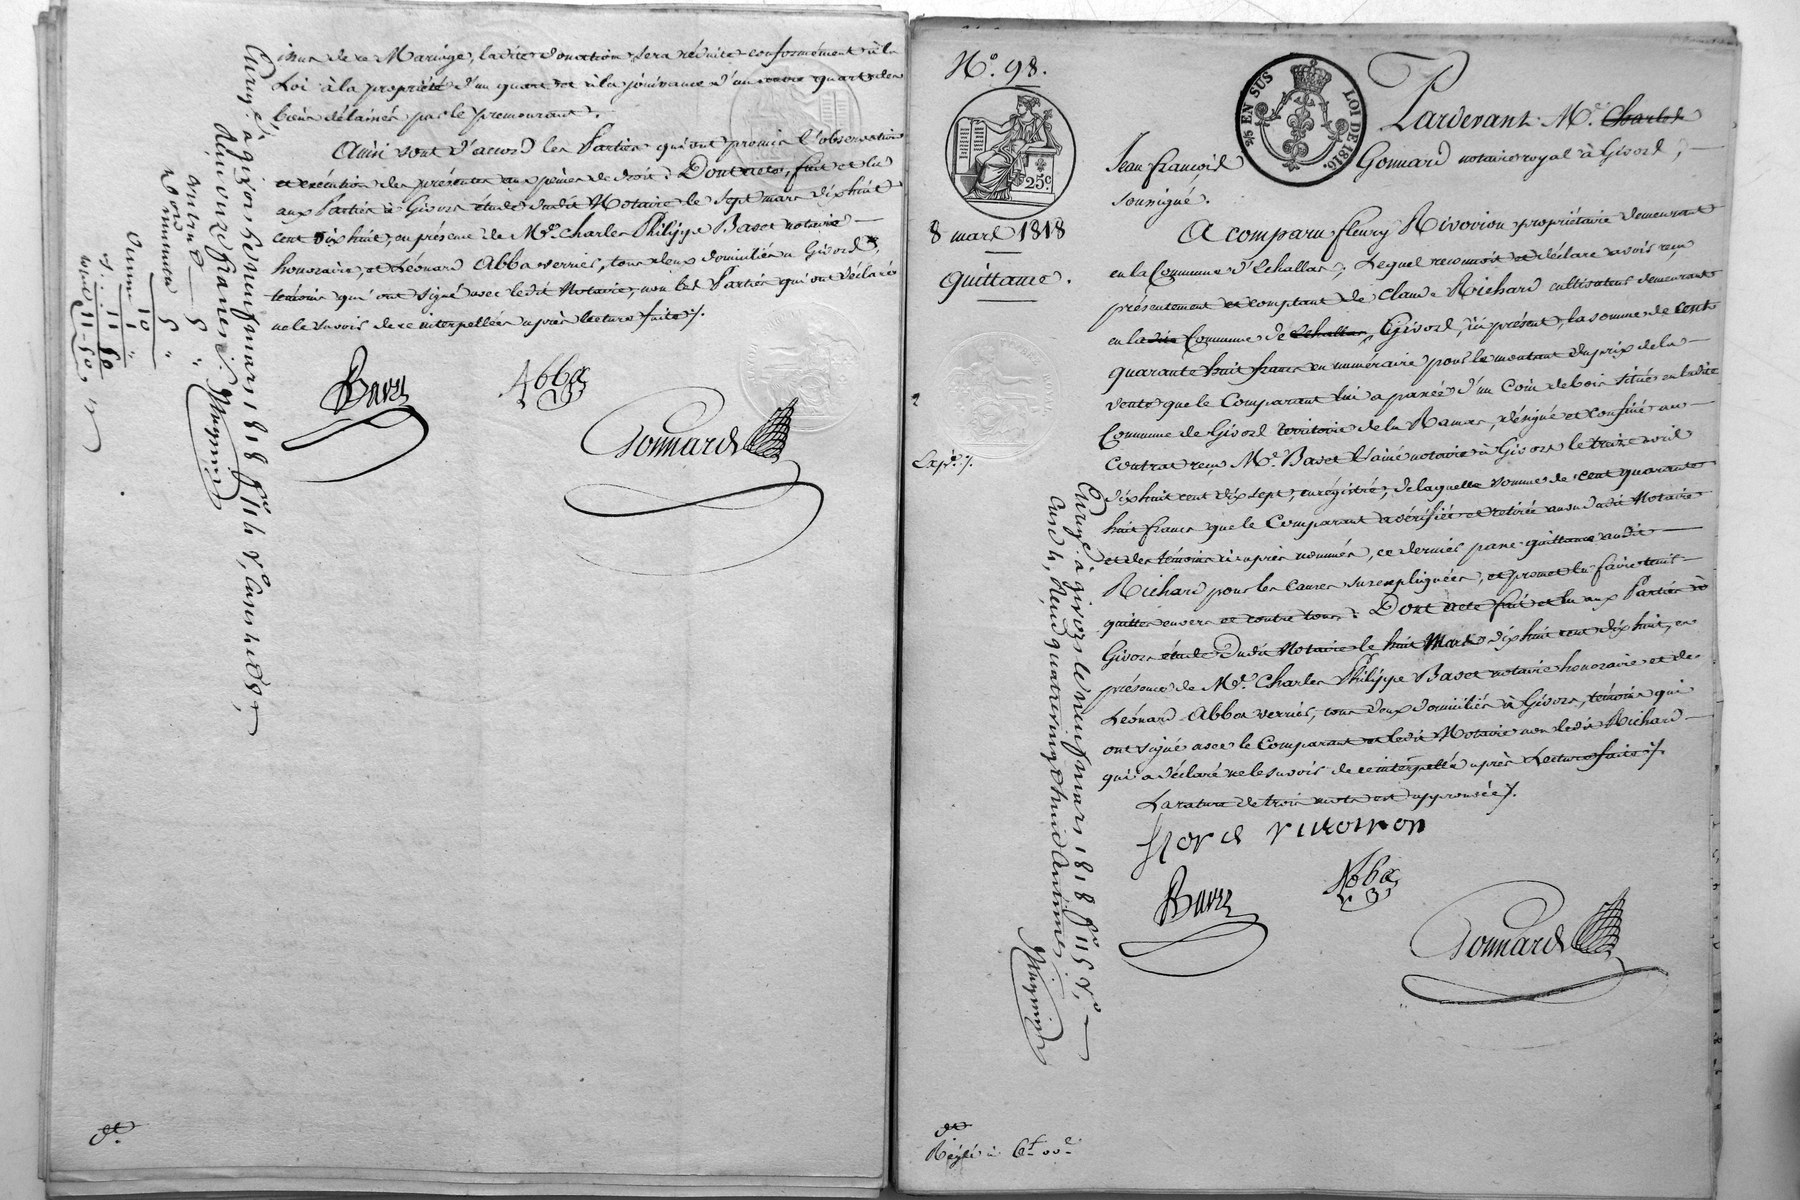 issus de ce Mariage, la dite donation sera réduite conformément à la
Loi à la propriété d'un quart et à la jouissance d'un autre quart des
biens délaissés par le premourant.
Ainsi sont d'accord les Parties qui ont promis l'observation
et exécution des présentes aux peines de droit. Dont acte, fait et lu
aux Parties à Givors étude dudit Notaire le sept mars dix huit
cent dix huit, en présence de Mr. Charles Philippe Basset notaire
honoraire, et Léonard Abba verrier, tous deux domiciliés à Givors,
témoins qui ont signé avec le dit Notaire, non les Parties qui ont déclaré
ne le savoir de ce interpellées après lecture faite /.
Abba
Gonnard
Enregé. à givors le neuf mars 1818 fo. 114
N.o 98.
25c
8 mars 1818
Quittance.
2/5 EN SUS
LOI DE 1816.
Pardevant Me. Charles
Jean françois
Gonnard notaire royal à Givors,
soussigné.
A comparu fleury Rivoiron propriétaire demeurant
en la Commune d'Echallas, Lequel reconnoit et déclare avoir reçu
présentement et comptant de Claude Richard cultivateur demeurant
en la dite Commune de Echallas, Givors, ici présent, la somme de cent
quarante huit francs en numéraire pour le montant du prix de la
vente que le Comparant lui a passée d'un Coin de bois situé en la dite
Commune de Givors territoire de la Rama, désigné et confiné au
contrat reçu Me. Basset l'ainé notaire à Givors le treize avril
dix huit cent dix sept, enrégistré, de laquelle somme de cent quarante
huit francs que le Comparant a vérifiée et retirée au vu dudit Notaire
et des témoins ci après nommés, ce dernier passe quittance audit
Richard pour les causes susexpliquées, et promet l'en faire tenir
quitte envers et contre tous. Dont acte fait et lu aux Parties à
Givors étude Dudit Notaire le huit Mars dix huit cent dix huit, en
présence de Mr. Charles Philippe Basset notaire honoraire et de
Léonard Abba verrier, tous deux domiciliés à Givors, témoins qui
ont signé avec le Comparant et ledit Notaire non ledit Richard
qui a déclaré ne le savoir de ce interpellé après Lecture faite /.
La rature de trois mots est approuvée /.
Abba
Gonnard
Enregé. à givors le neuf mars 1818 fo. 115 vo.
Réglé à 6f. 00c